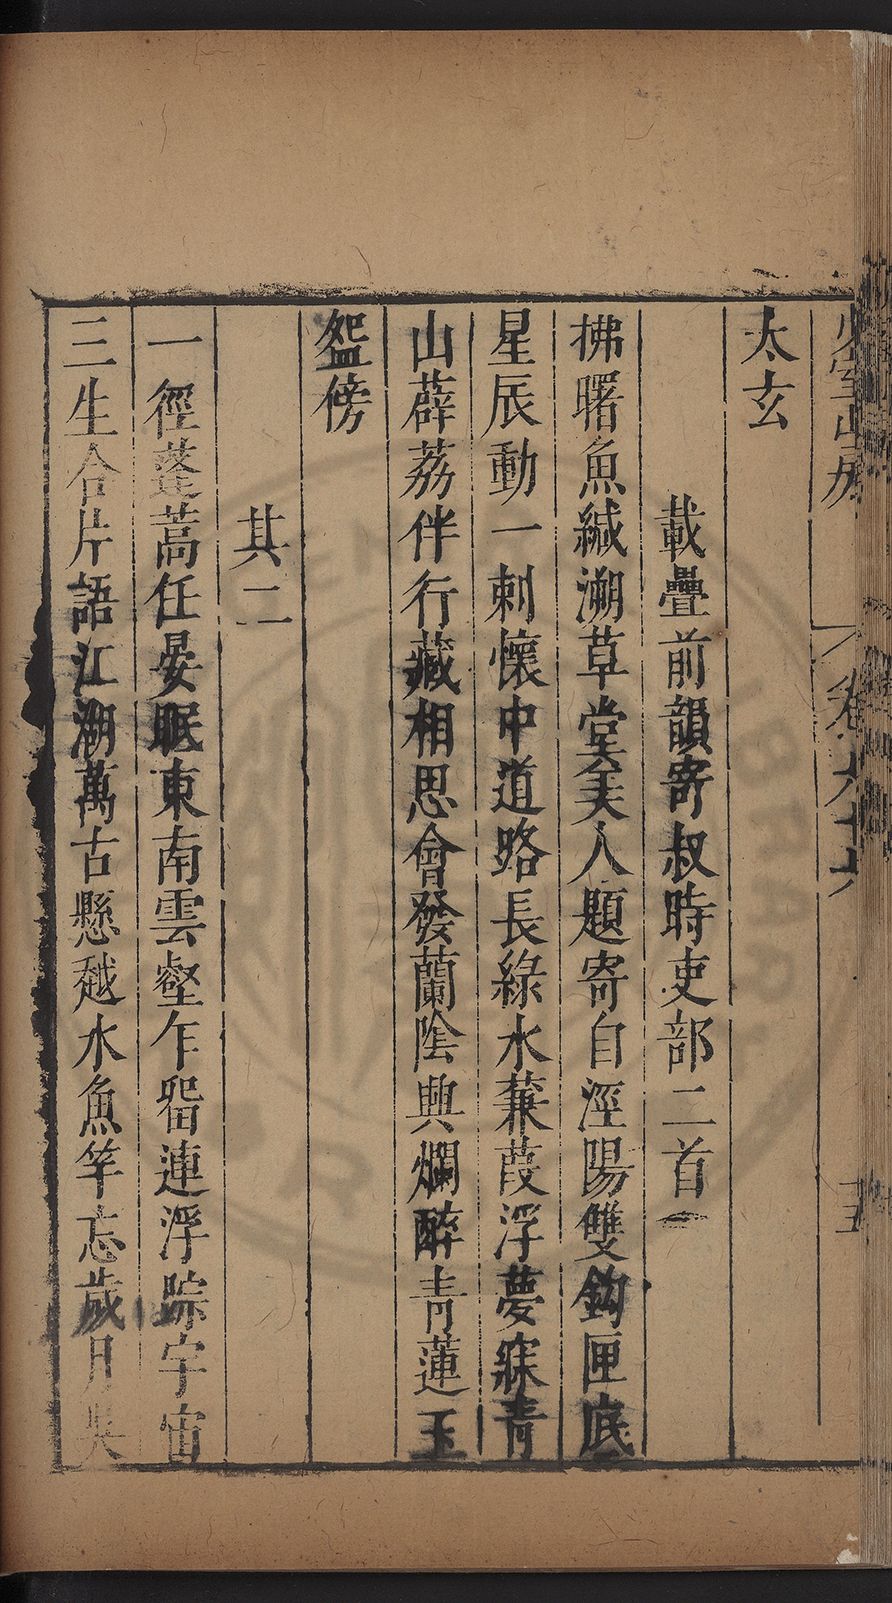 少室山房　卷六十六　五
太玄
載疊前韻寄叔時吏部二首
拂曙魚緘溯草堂美人題寄自涇陽雙鈎匣底
星辰動一刺懷中道路長綠水蒹葭浮夢寐青
山薜荔伴行藏相思會發蘭陰興爛醉青蓮玉
盌傍
其二
一徑蓬蒿任晏眠東南雲壑乍畱連浮踪宇宙
三生合片語江湖萬古懸越水魚竿忘歲月吳